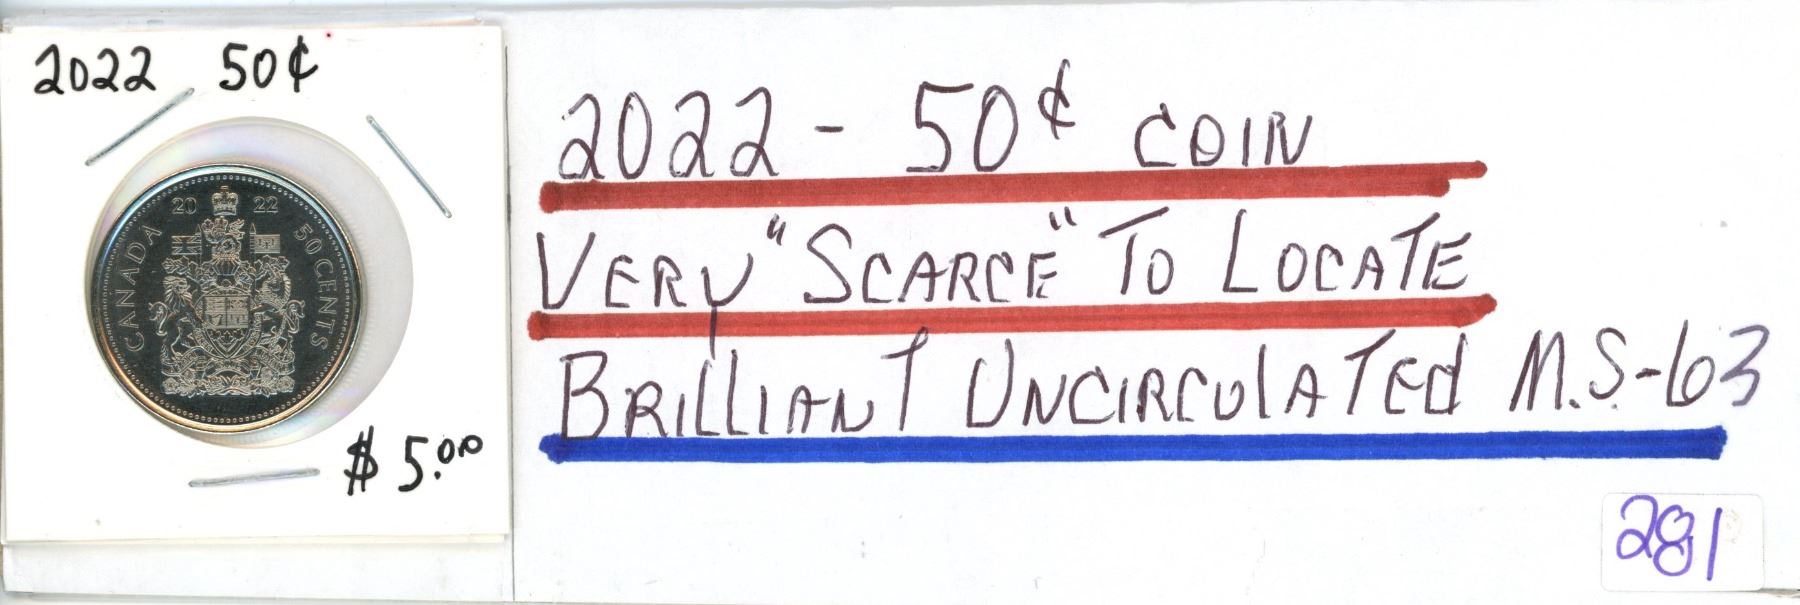 2022 50¢
20 22
CANADA
50 CENTS
$5.00
2022 - 50¢ COIN
VERY "SCARCE" TO LOCATE
BRILLIANT UNCIRCULATED M.S-63
281